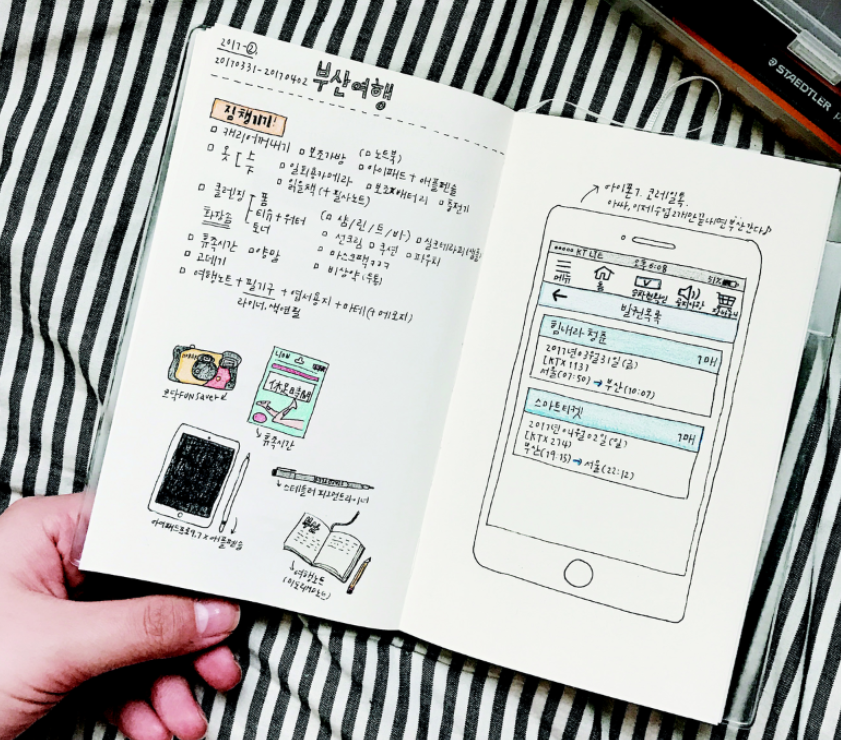 2017-②.
20170331-20170402 부산여행
짐 챙기기!
□ 캐리어 꺼내기 □ 보조가방 (□ 노트북)
□ 옷 □ 일회용카메라 □ 아이패드 + 애플펜슬
□ 읽을책 (+ 필사노트) □ 보조배터리 □ 충전기
□ 클렌징 폼
티슈 + 워터
토너
(□ 샴/린/트/바)
화장솜
□ 선크림 □ 쿠션 □ 파우치
□ 휴족시간 □ 양말 □ 마스크팩 ㅋㅋㅋ
□ 고데기 □ 비상약 (두통)
□ 여행노트 + 필기구 + 엽서용지 + 마테 (+ 메모지)
라이너, 색연필
코닥 FUN saver
LION
休足時間
휴족시간
아이패드프로 9.7 x 애플펜슬
스테들러 피그먼트라이너
여행노트
아이폰7. 코레일톡.
아싸, 이제 수업 2개만 끝나면 부산간다♪
KT LTE 오후 6:08 51%
메뉴 홈 승차권확인
← 발권목록
힘내라 청춘 1매
2017년 03월 31일 (금)
[KTX 113]
서울(07:50) → 부산(10:07)
스마트티켓 1매
2017년 04월 02일 (일)
[KTX 274]
부산(19:15) → 서울(22:12)
STAEDTLER